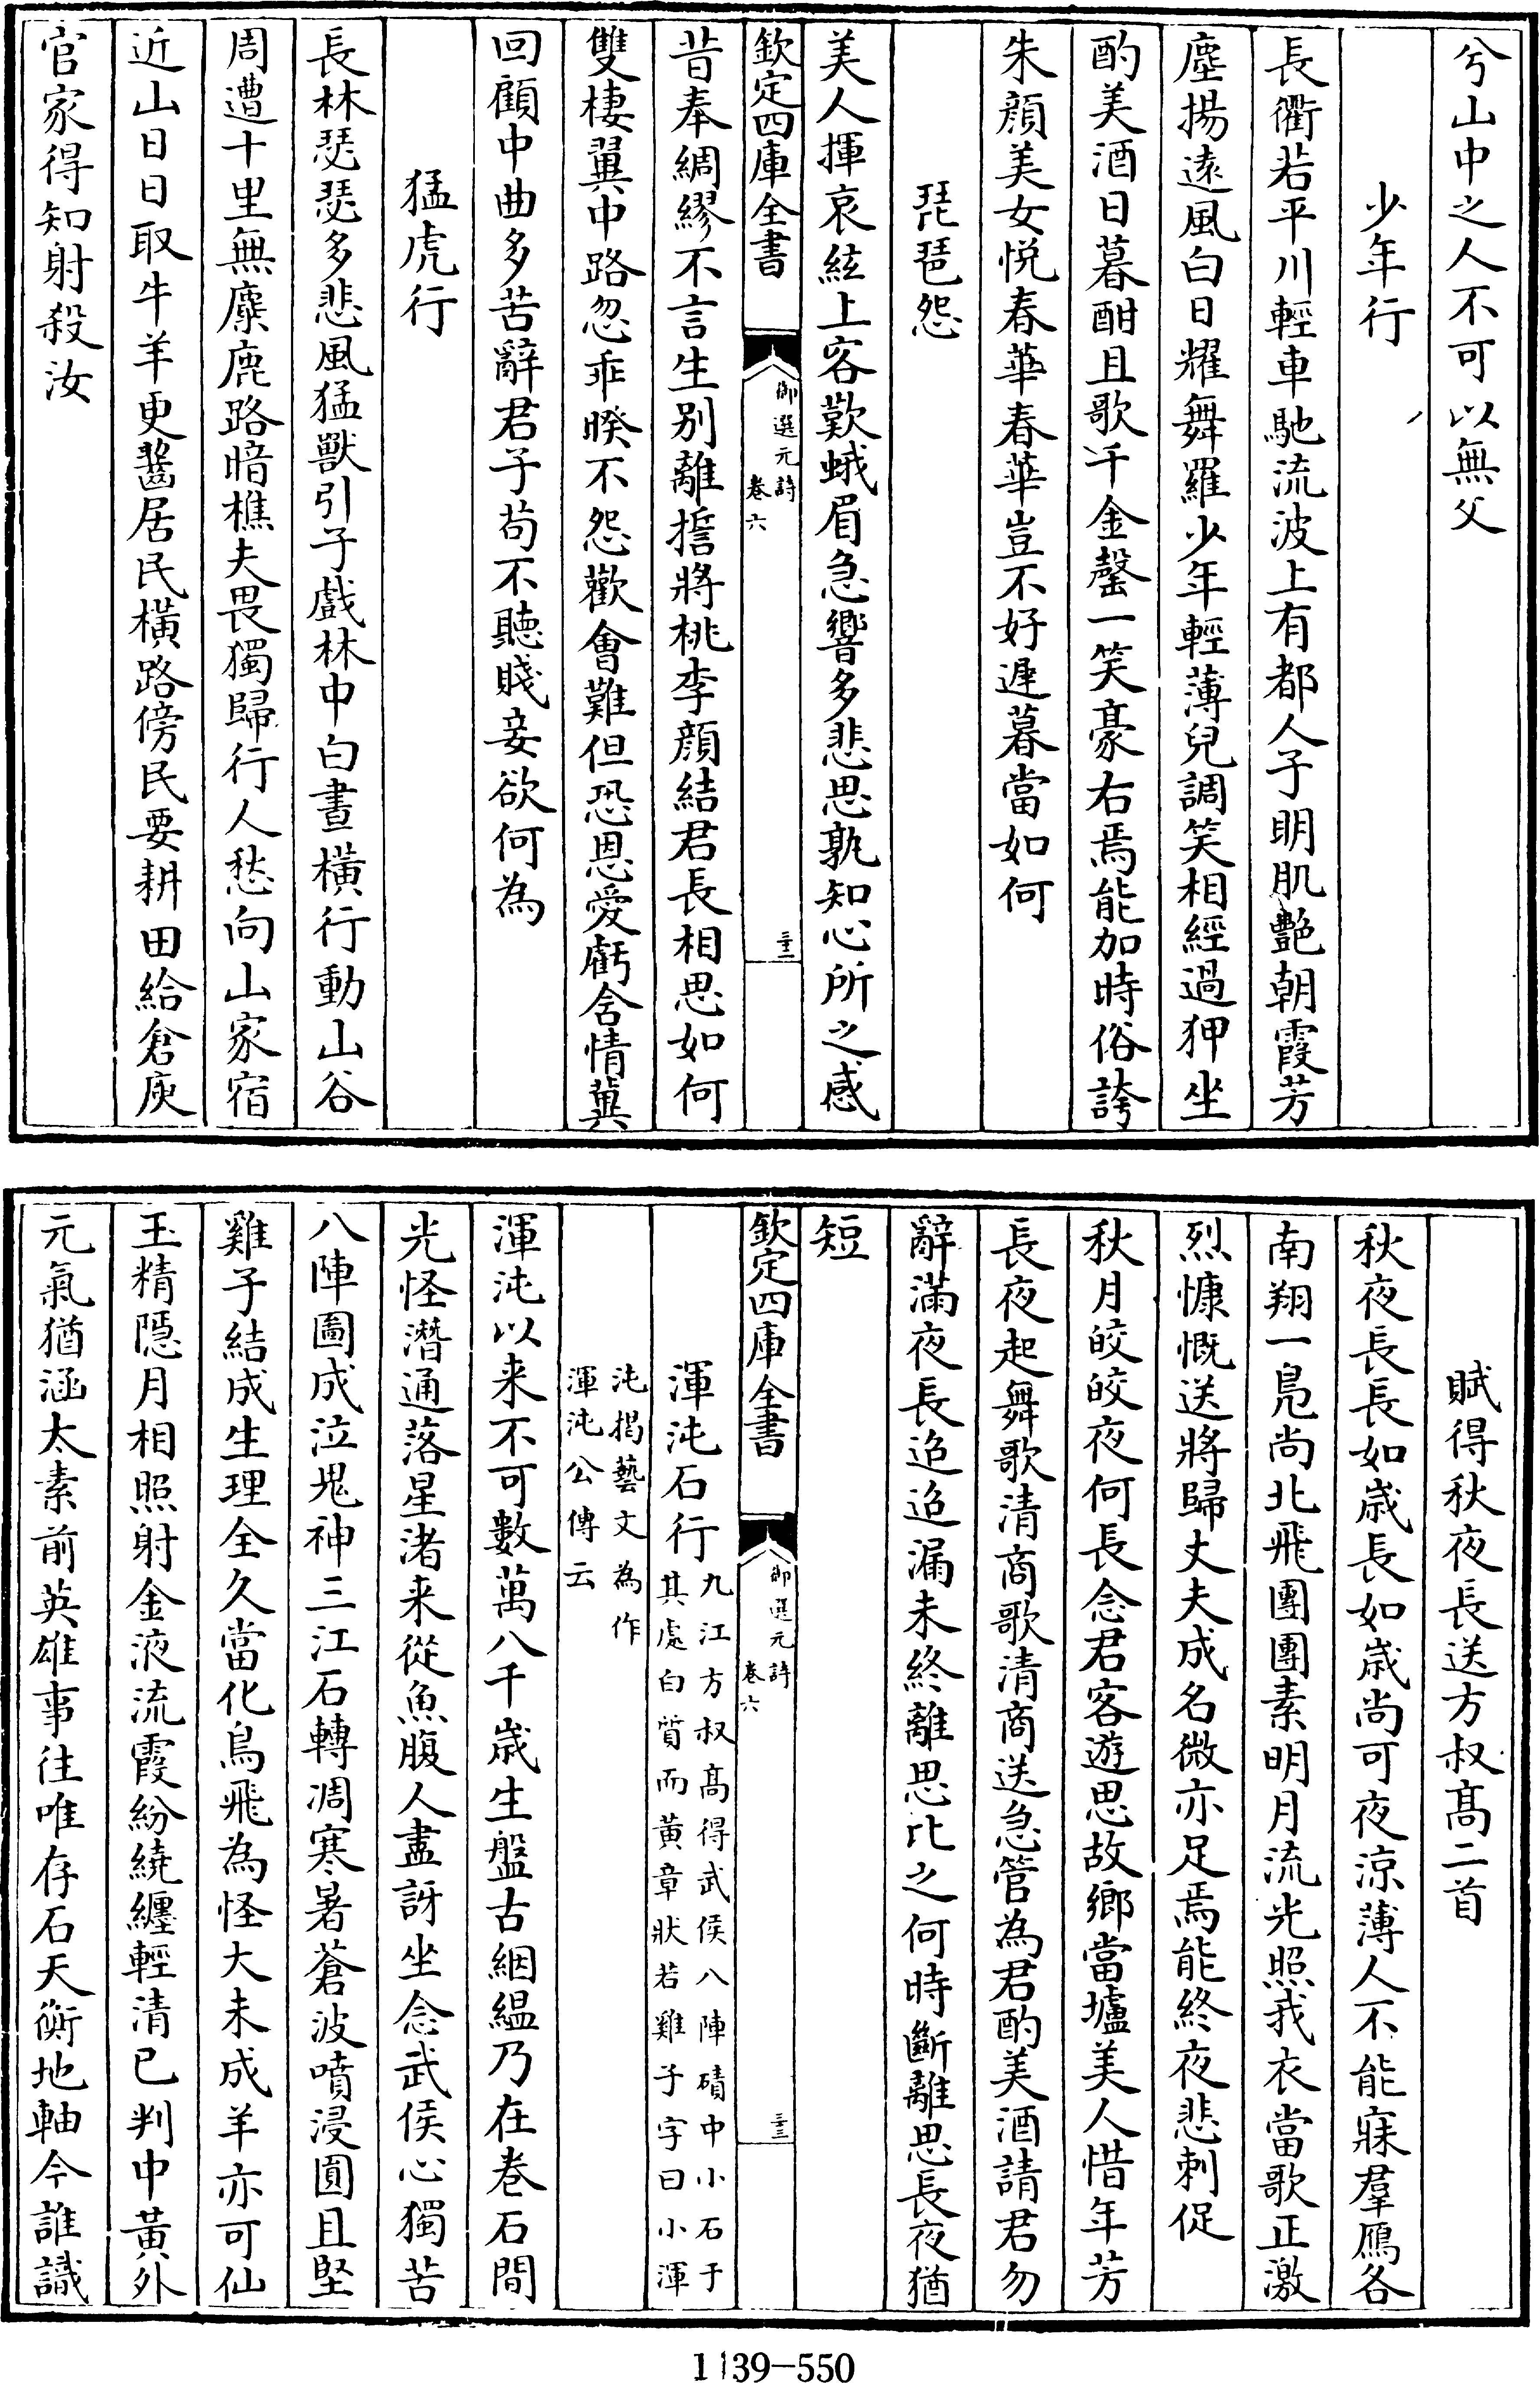 兮山中之人不可以無父
少年行
長衢若平川輕車馳流波上有都人子明肌艷朝霞芳
塵揚遠風白日耀舞羅少年輕薄兒調笑相經過狎坐
酌美酒日暮酣且歌千金罄一笑豪右焉能加時俗誇
朱顔美女悦春華春華豈不好遲暮當如何
琵琶怨
美人揮哀絃上客歎蛾眉急響多悲思孰知心所之感
欽定四庫全書
御選元詩
卷六
三十二
昔奉綢繆不言生别離擔將桃李顔結君長相思如何
雙棲翼中路忽乖暌不怨歡會難但恐恩愛虧含情冀
回顧中曲多苦辭君子苟不聽賤妾欲何為
猛虎行
長林瑟瑟多悲風猛獸引子戲林中白晝橫行動山谷
周遭十里無麋鹿路暗樵夫畏獨歸行人愁向山家宿
近山日日取牛羊更齧居民橫路傍民要耕田給倉庾
官家得知射殺汝
賦得秋夜長送方叔髙二首
秋夜長長如嵗長如嵗尚可夜涼薄人不能寐羣鴈各
南翔一鳬尚北飛團團素明月流光照我衣當歌正激
烈慷慨送將歸丈夫成名微亦足焉能終夜悲刺促
秋月皎皎夜何長念君客遊思故鄉當壚美人惜年芳
長夜起舞歌清商歌清商送急管為君酌美酒請君勿
辭滿夜長迢迢漏未終離思比之何時斷離思長夜猶
短
欽定四庫全書
御選元詩
卷六
三十三
渾沌石行九江方叔髙得武侯八陣磧中小石于
其處白質而黃章狀若雞子字曰小渾
沌揭藝文為作
渾沌公傳云
渾沌以来不可數萬八千嵗生盤古絪緼乃在巻石間
光怪潛通落星渚来從魚腹人盡訝坐念武侯心獨苦
八陣圖成泣鬼神三江石轉凋寒暑蒼波噴浸圓且堅
雞子結成生理全久當化鳥飛為怪大未成羊亦可仙
玉精隠月相照射金液流霞紛繞纏輕清已判中黃外
元氣猶涵太素前英雄事往唯存石天衡地軸今誰識
1139-550